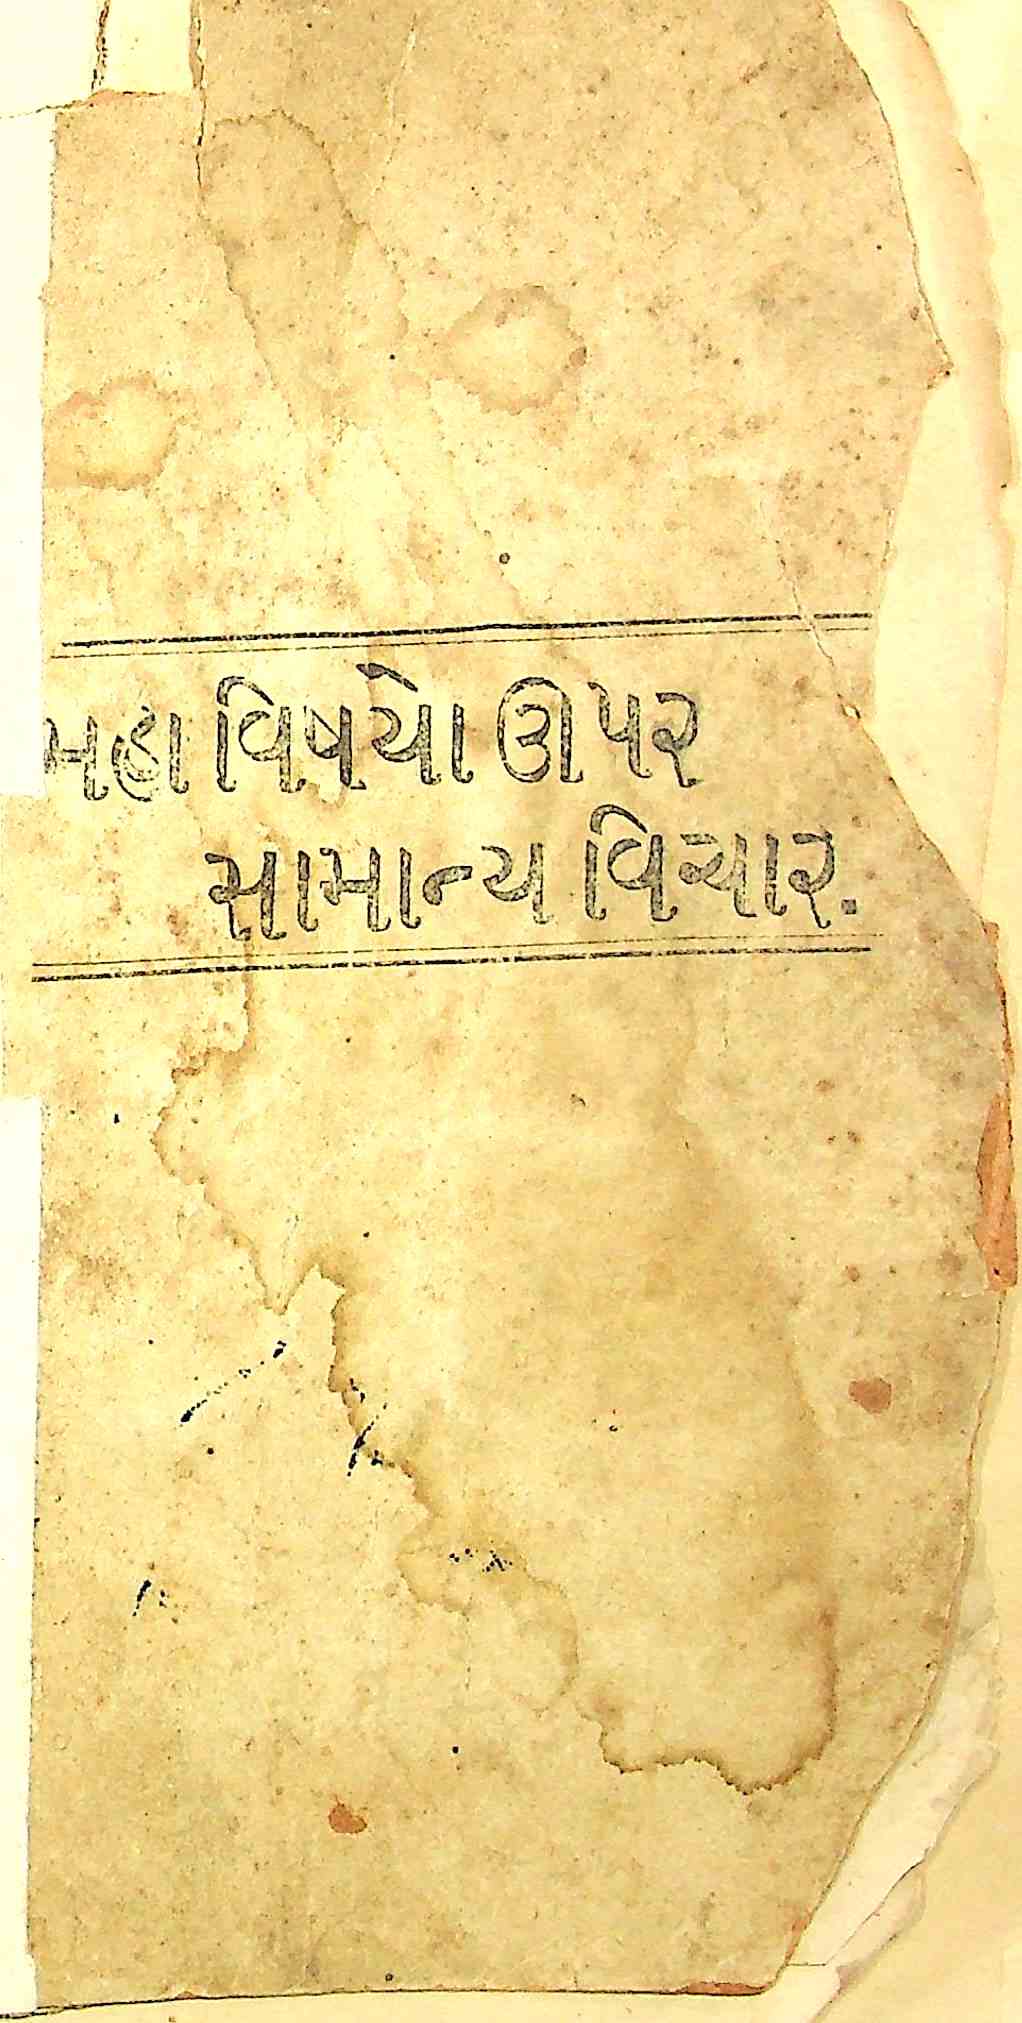 મહા વિષયો ઊપર
સામાન્ય વિચાર.